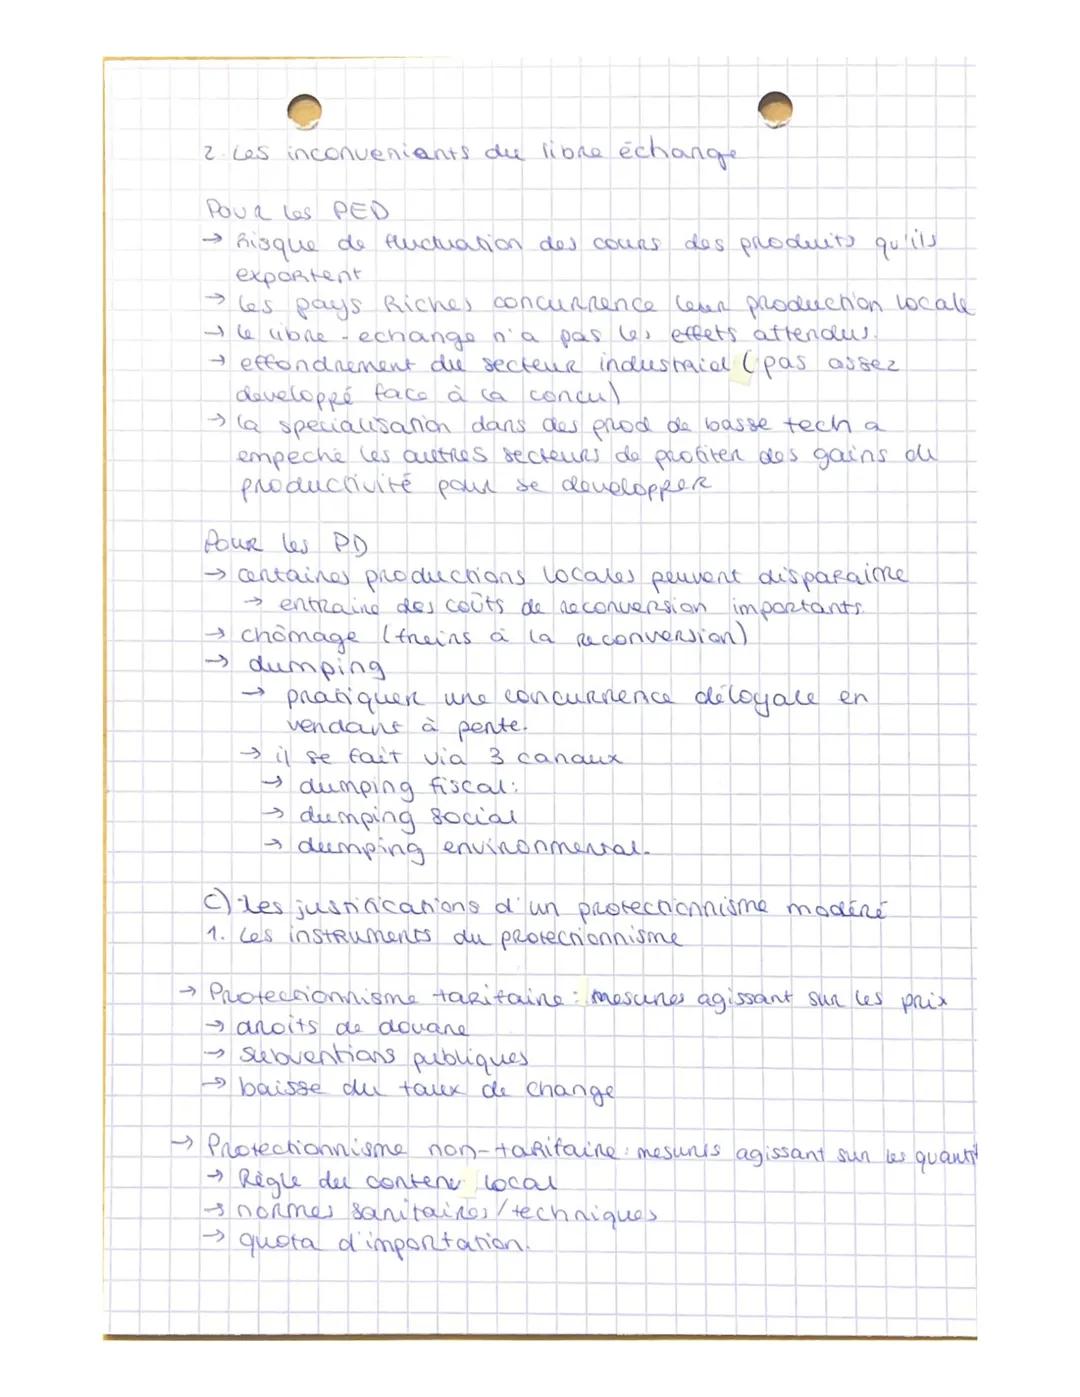 2. Les inconvenients du libre échange
Pour les PED
→ Risque de fluctuation des cours des produits qu'ils
exportent
→ les pays Riches concurrence leur production locale
→ le libre-echange n'a pas les effets attendus.
→ effondrement du secteur industraiel (pas assez
developpé face à la concu)
→ la specialisation dans des prod de basse tech a
empeche les autres secteurs de profiter des gains de
productivité pour se developper
Pour les PD
→ certaines productions locales peuvent disparaitre
→ entraine des coûts de reconversion importants
→ chômage (freins à la reconversion)
→ dumping
→ pratiquer une concurrence déloyale en
vendant à perte.
→ il se fait via 3 canaux
→ dumping fiscal:
→ dumping social
→ dumping environmental.
C) Les justifications d'un protectionnisme modéré
1. Les instruments du protectionnisme
→ Protectionnisme taritaire : mesures agissant sur les prix
→ droits de douane
→ subventions publiques
→ baisse du taux de change
→ Protectionnisme non-taritaire : mesures agissant sur les quanti
→ Règle du contenu local
→ normes sanitaires/techniques
→ quota d'importation.